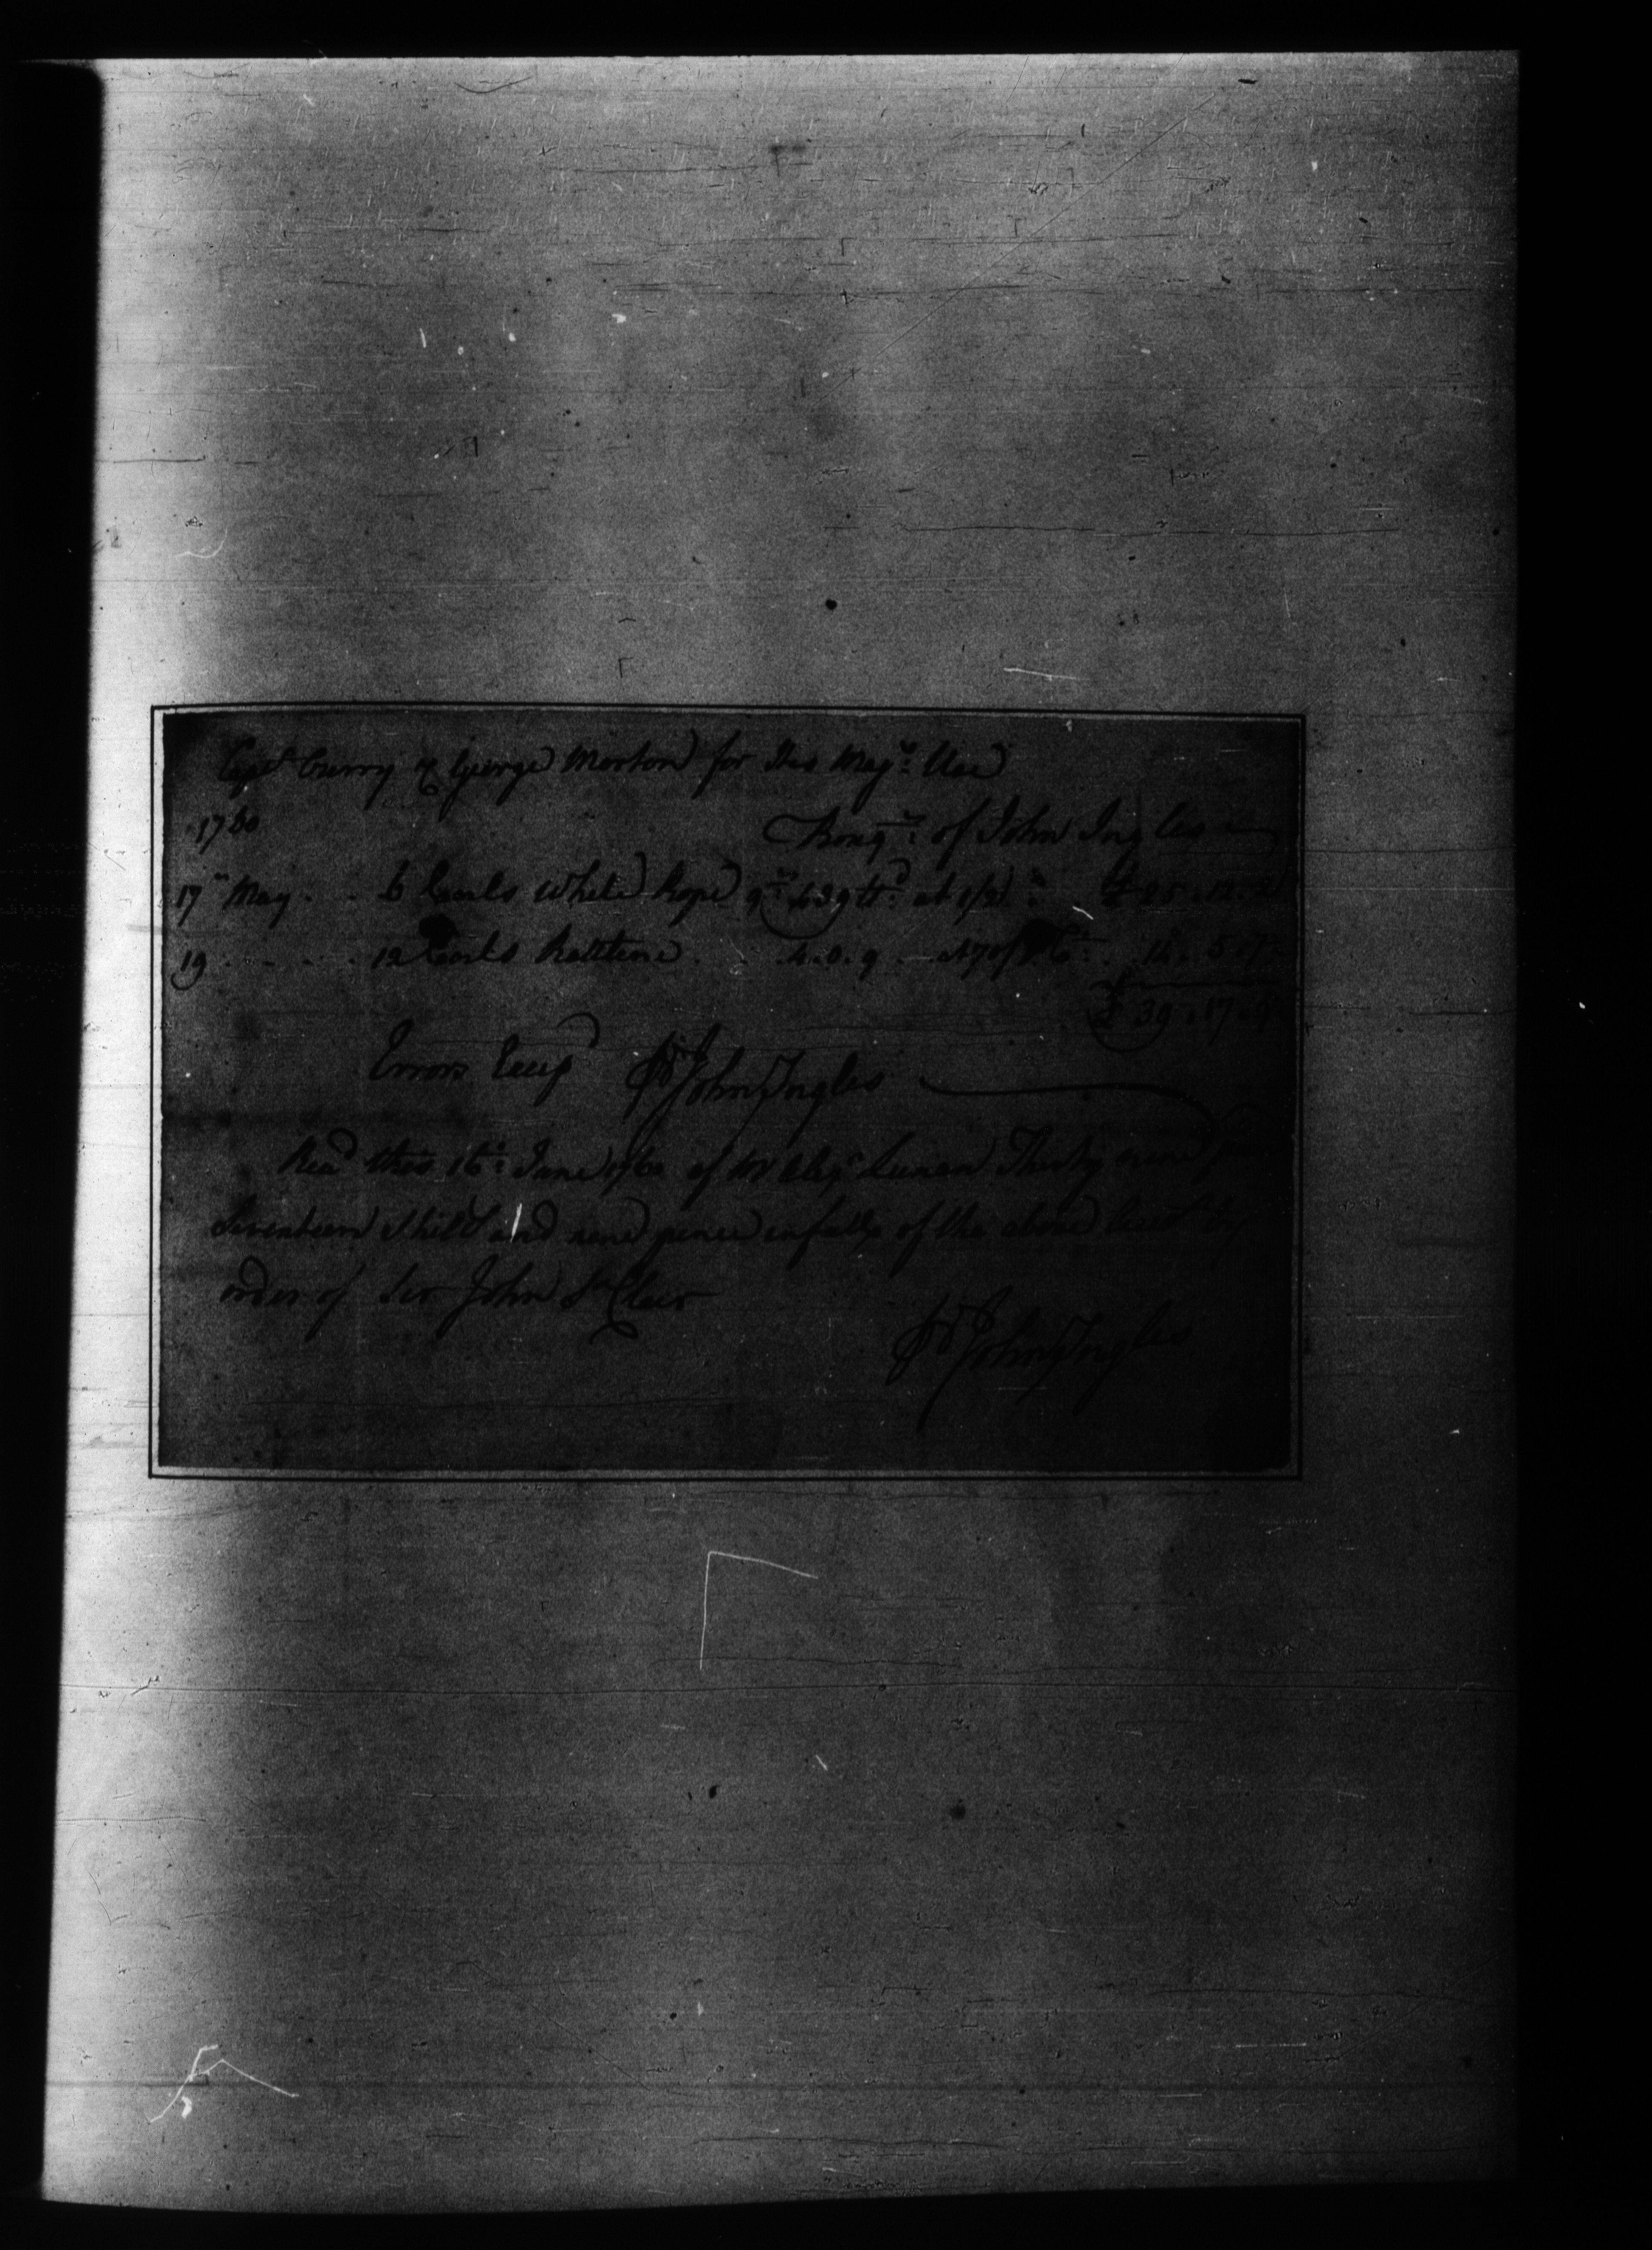 Capt Curry & George Morton for His Majts Use
1760
Bong.t of John Ingles
17th May . . 6 Coils White Rope qt 439 lb at 1/2 . £ 25 . 12 . 2
19 . . . . 12 Coils Rattline . . 4.0.9 at 70/ . 14 . 5 . 7
£ 39 . 17 . 9
Errors Excepd Pr John Ingles
Recd this 16th June 1760 of Mr Alexr Lunan Thirty nine
Seventeen Shills and nine pence in full of the above Acct by
order of Sir John St Clair
Pr John Ingles